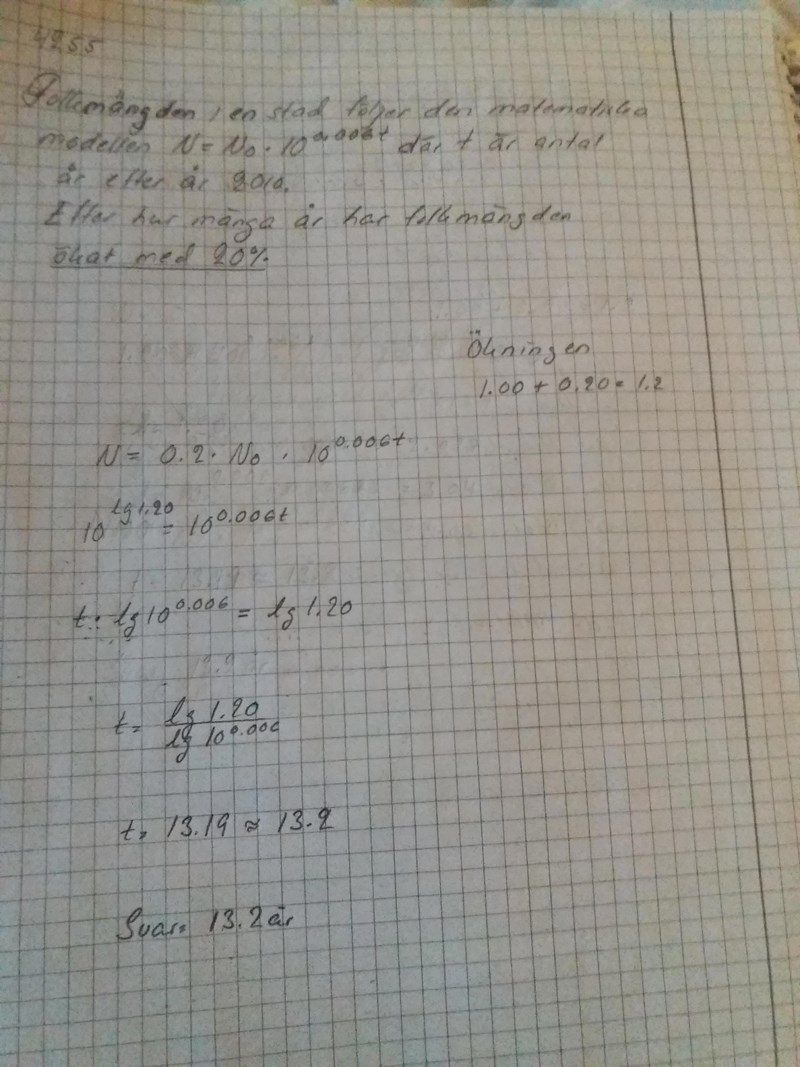 4255
Folkmängden i en stad följer den matematiska
modellen N = N₀ · 10^0.006t där t är antal
år efter år 2010.
Efter hur många år har folkmängden
ökat med 20%
Ökningen
1.00 + 0.20 = 1.2
N = 0.2 · N₀ · 10^0.006t
10^lg 1.20 = 10^0.006t
t · lg 10^0.006 = lg 1.20
t = lg 1.20 / lg 10^0.006
t = 13.19 ≈ 13.2
Svar = 13.2 år